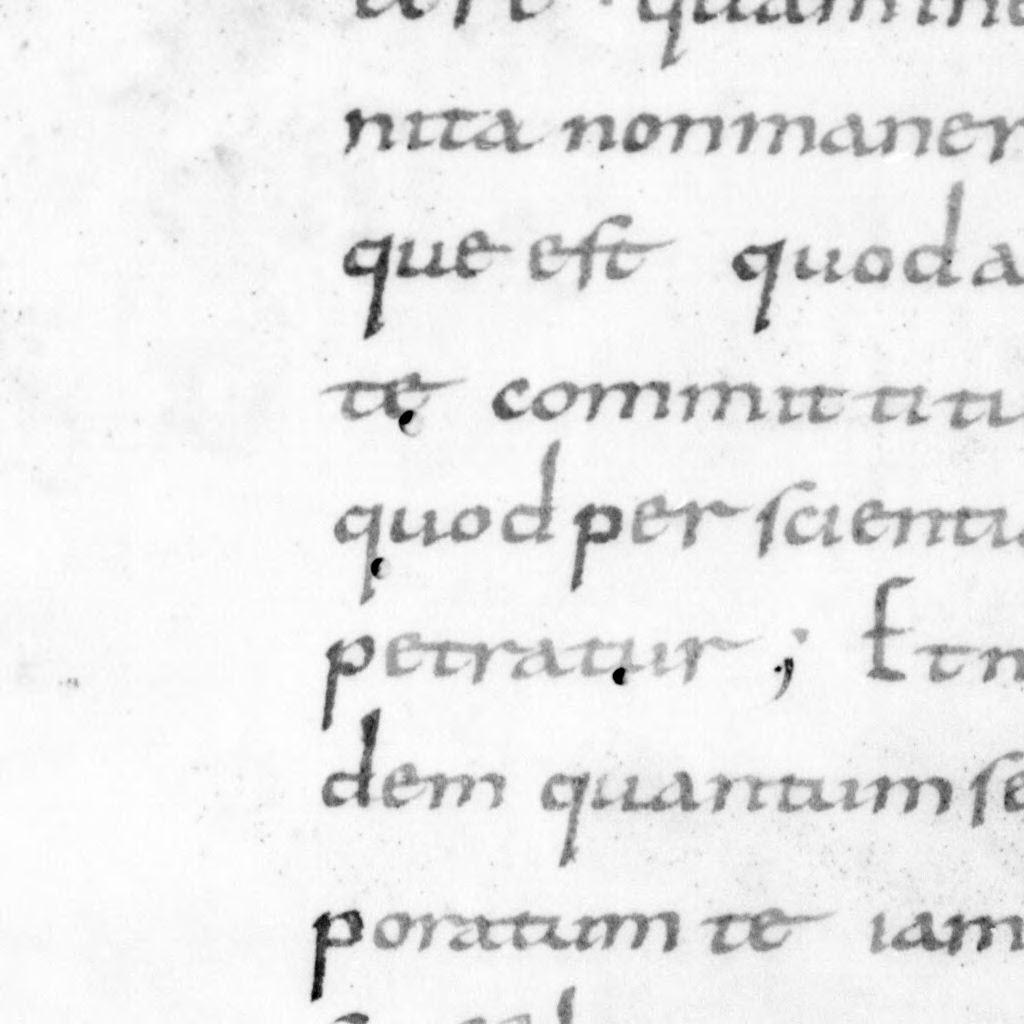 quam
nita non maner
que est quod a
te committi ti
quod per scienti
petratur ; Et
dem quantum se
poratum te iam